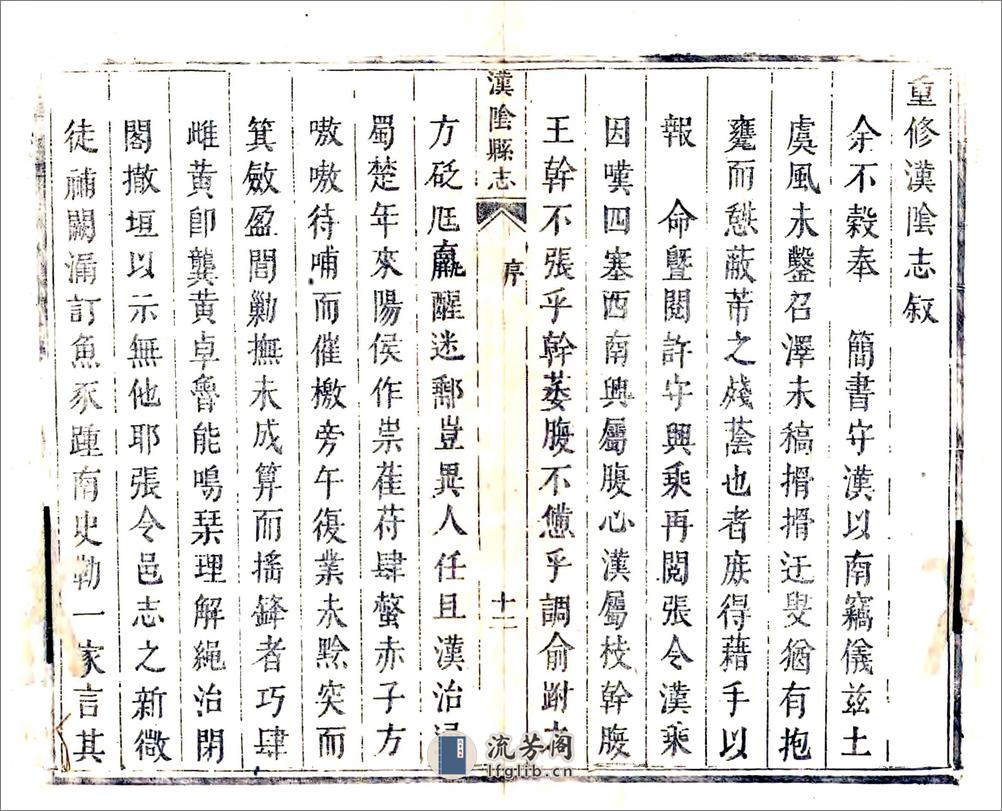 重修漢陰志叙
余不穀奉　簡書守漢以南竊儀兹土
虞風未鑿召澤未稿搰搰迂叟猶有抱
甕而憇蔽芾之殘蔭也者庻得藉手以
報　命暨閱許守興乘再閱張令漢乘
因嘆四塞西南興屬腹心漢屬枝幹腹
王幹不張乎幹萎腹不憊乎調俞跗
漢陰縣志
序
十二
方砭尫羸醒迷鄰豈異人任且漢治
蜀楚年來陽侯作祟萑苻肆螫赤子方
嗷嗷待哺而催檄旁午復業未黔突而
箕斂盈閭勦撫未成算而搖鋒者巧肆
雌黃即龔黃卓魯能鳴琹理解繩治閉
閣撤垣以示無他耶張令邑志之新徵
徒補闕漏訂魚豕踵南史勒一家言其
流芳阁
lfglib.cn